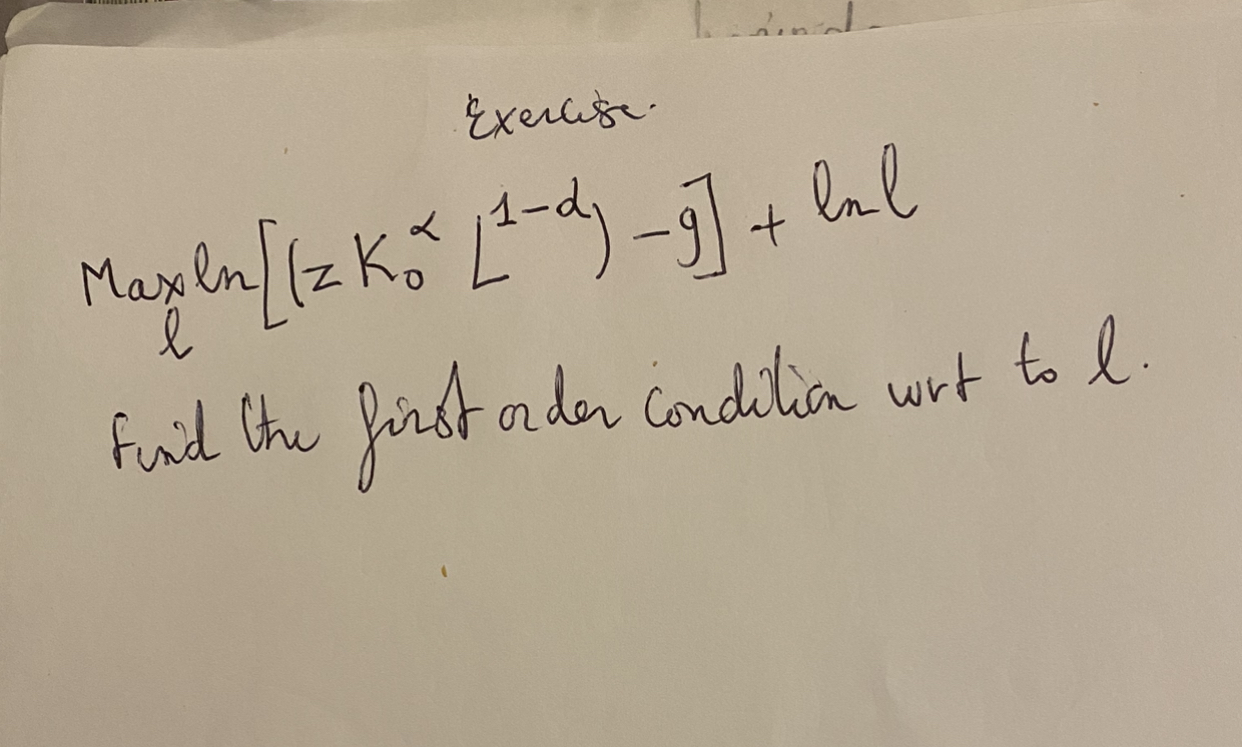 Exercise.
Max ln[(z K₀^α L^{1-α}) - g] + ln l
l
Find the first order condition wrt to l.